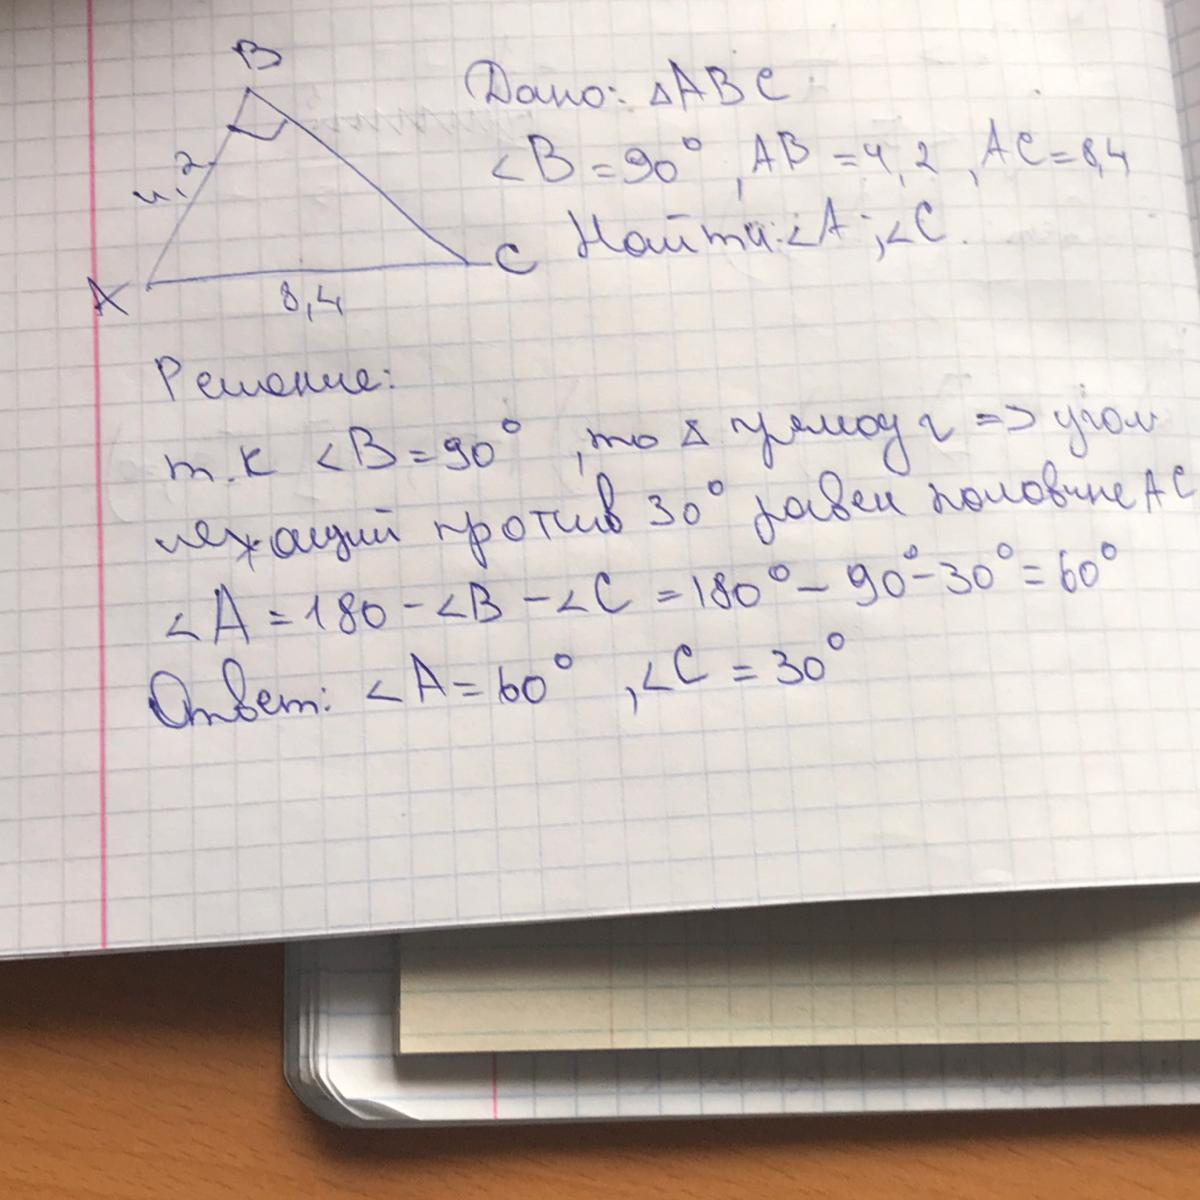 B
Дано: △ABC
4,2
∠B = 90°, AB = 4,2, AC = 8,4
Найти: ∠A; ∠C.
A
C
8,4
Решение:
т.к ∠B = 90°, то △ прямоуг => угол
лежащий против 30° равен половине AC
∠A = 180 - ∠B - ∠C = 180° - 90° - 30° = 60°
Ответ: ∠A = 60°, ∠C = 30°